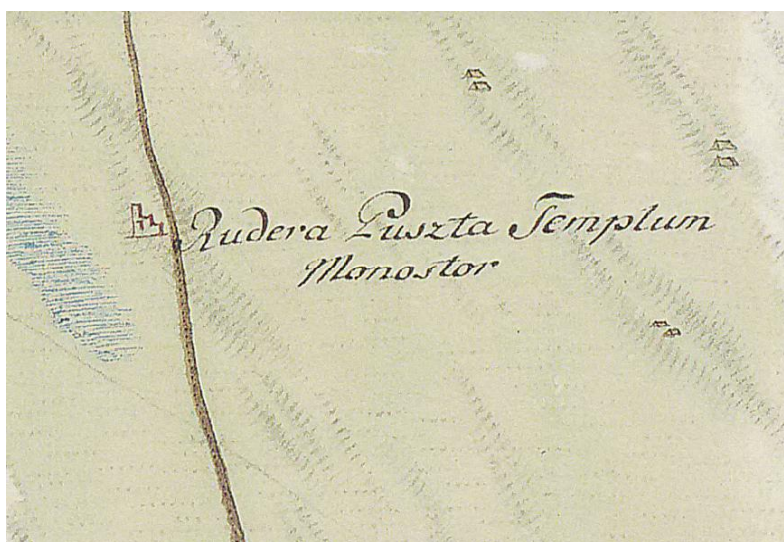 Rudera Puszta Templum
Monostor